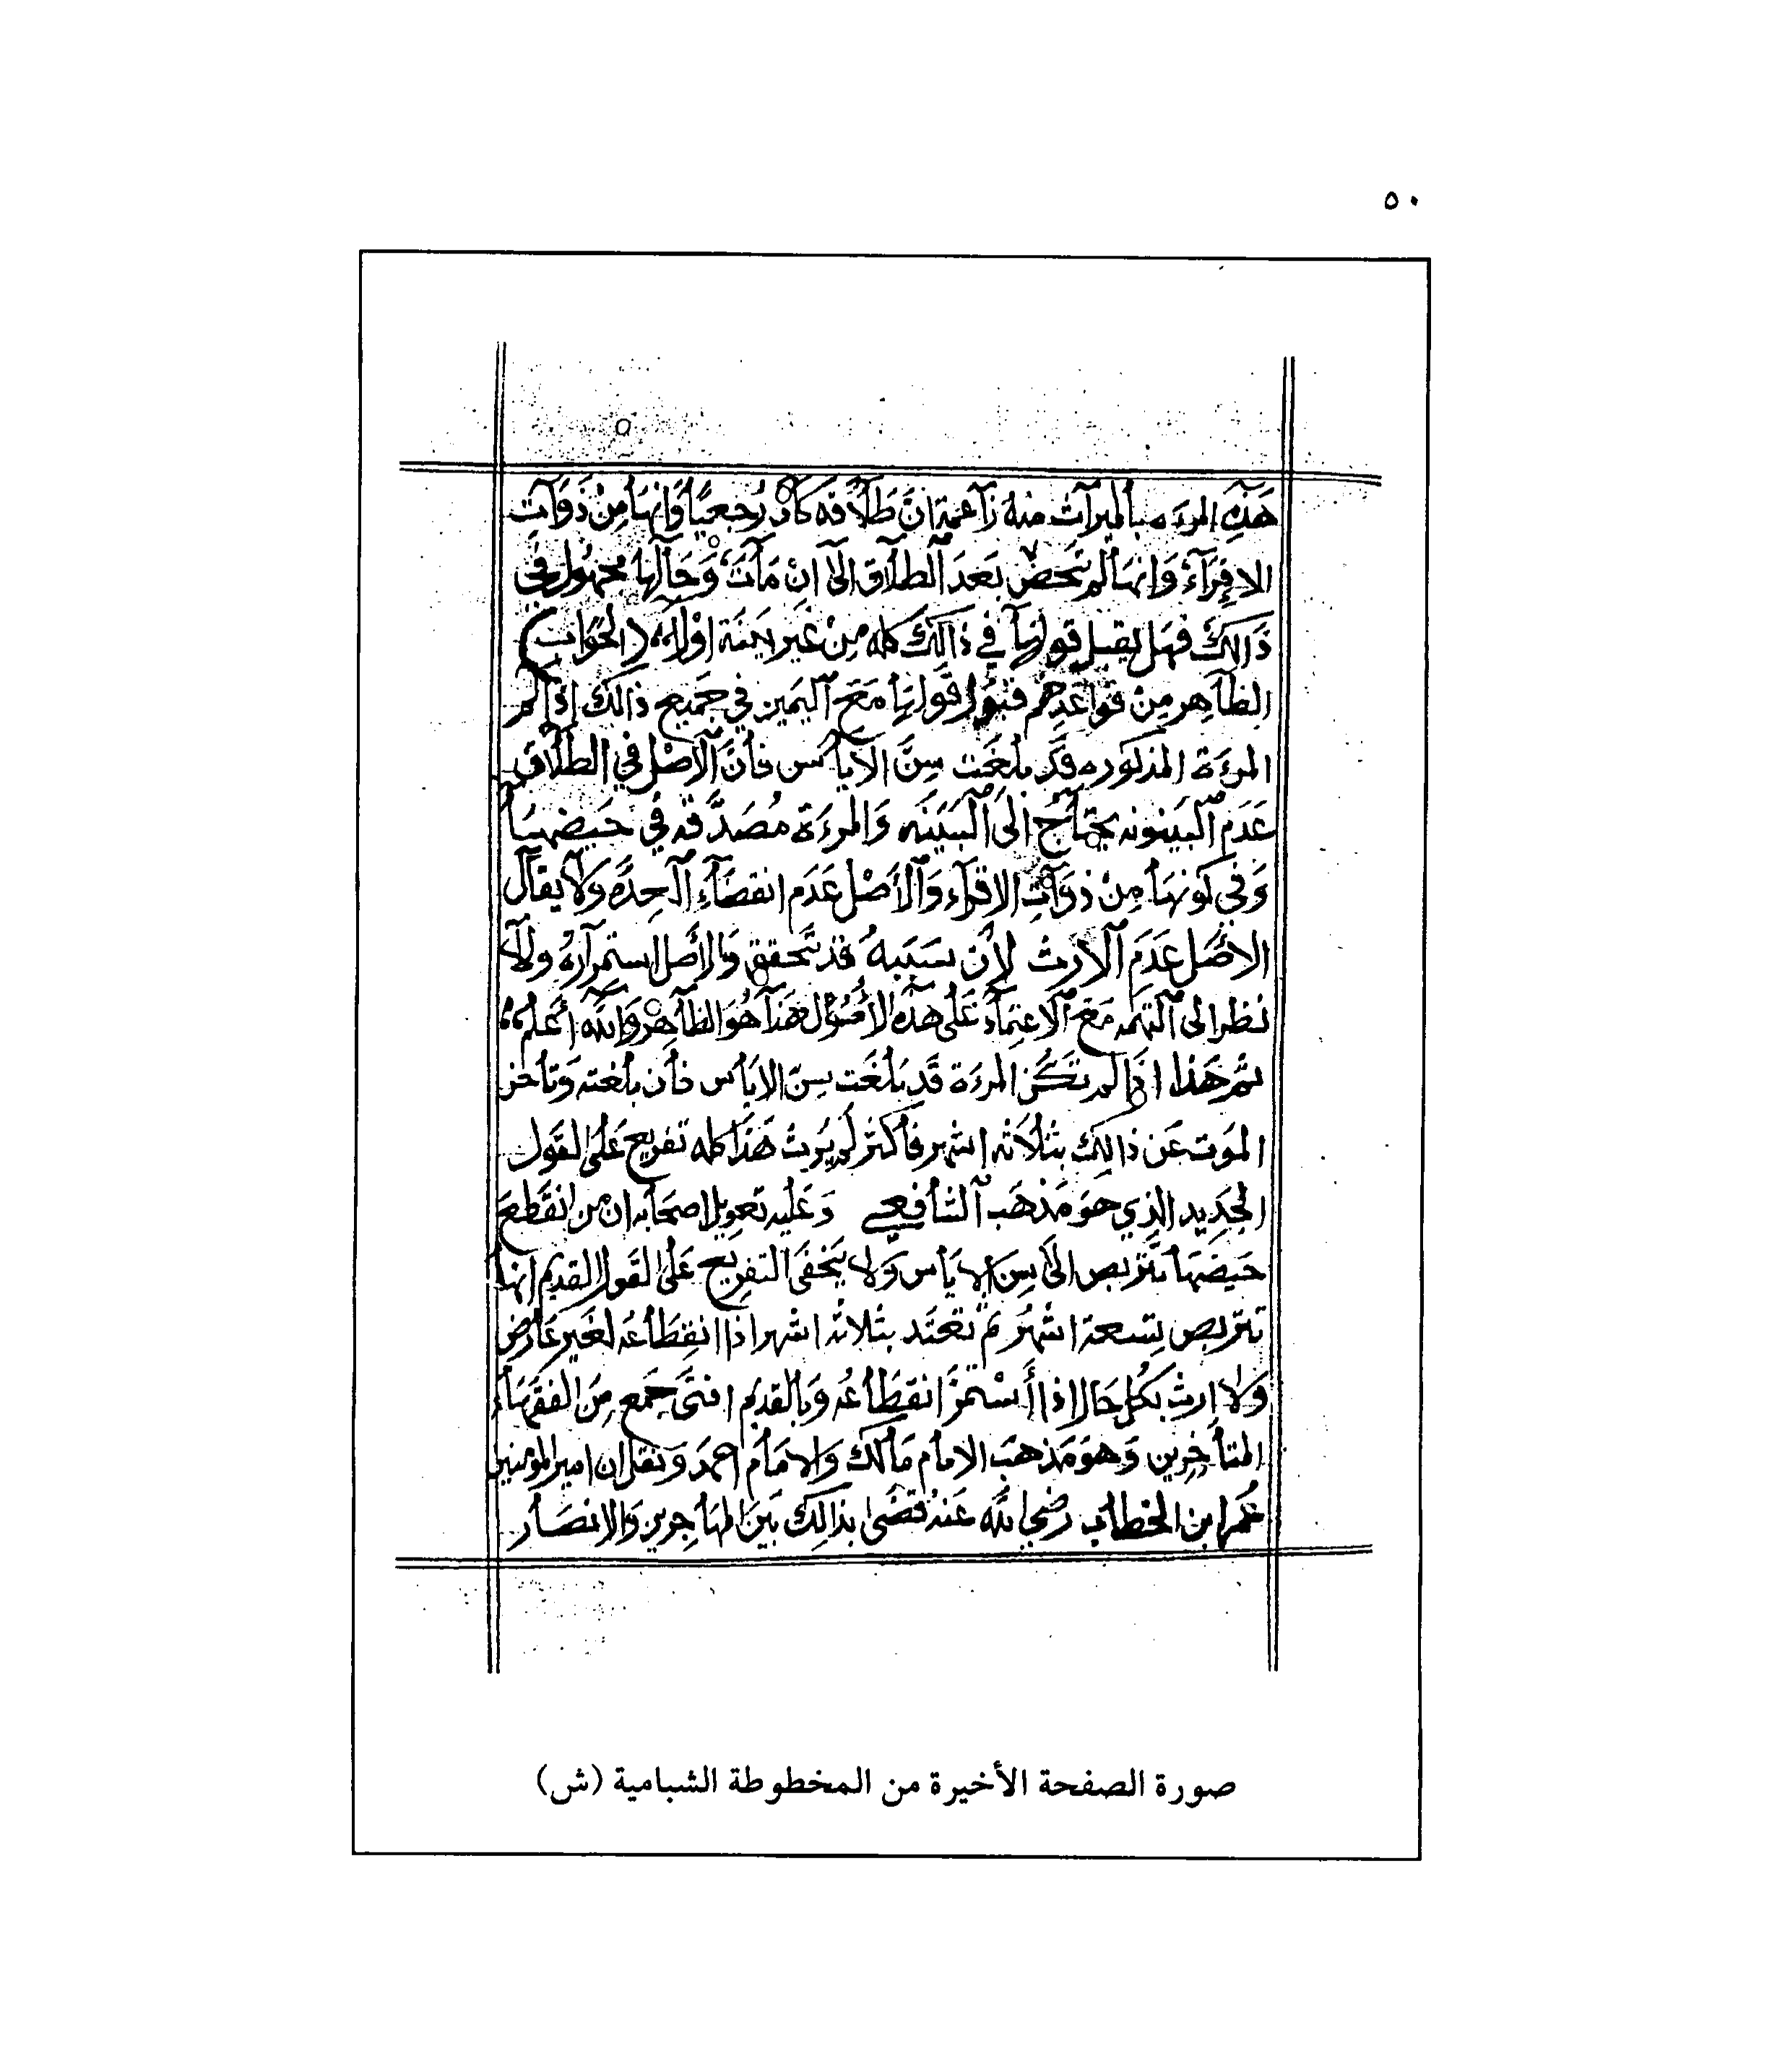 ٥٠
هَذِهِ المرءه بالميرآث منه زآعمة انَّ طَلَاقه كان رُجعيًا وَانهَا مِنْ ذَوَآت
الاقِرَآءْ وَانهَا لم تَحض بَعدَ آلطلاق الىَ انْ مَاتَ وَحَالها مجهُول في
ذَالكَ فهَل يقبل قولهَا في ذالكَ كله مِنْ غير يمَنَة اوْلا، (الجَوَاب)
الظاهِر مِنْ قوَاعَدِهم قبُول قَولهَا مَعَ آليَمين في جَميع ذالكَ اذا لم
المرءة المذكوره قَد بلغَت سِنَّ الاياس فانَّ الاصْل في الطلاق
عَدَم آلبَينونه يحتاج الىَ آلبَيَنَه وَالمرءَة مُصَدَّقه في حَيضهَا
وَفي كونهَا مِنْ ذوَآتِ الاقرآء وَآلأَصْل عَدَم انقضَآءِ آلعِدَّه وَلا يقال
الاصَل عَدَمَ آلارث لِأن سَبَبهُ قد تَحقق وَالأَصل استمرآرهُ ولا
نظر الى آلتهمه مَعَ آلاعتِماد عَلى هذه الأصُوْل هَذا هُوَ الظاهِر وَالله أعَلم
ثم هَذا اذَا لم تكَن المرءة قَد بَلغَت سِنّ الايَاس فان بلغته وَتأخر
الموَت عَن ذالِكَ بثلاثه اشهر فاكثر لم يَرث هَذا كله تفريع عَلىَ القَول
الجَدِيد الذِي هوَ مَذهَب آلشافِعي وَعَليه تعوِيل اصحَابه ان من انقَطعَ
حَيضهَا تتَربص الىَ سِن الايَاس وَلا يَخفَى التفرِيع عَلى القَول القديم انها
تتَربص بتسعة اشهُر ثم تعتَد بثلاثه اشهر اذا انقِطَاعَه لغَير عَارض
وَلا ارث بكُل حَال اذا أسْتمرَ انقطَاعُه وَبالقديم افتىَ جَمع مِنَ الفقهَاءِ
المتأخِرِين وَهوَ مَذهَبَ الامام مَالكَ وَالامَام احمدَ ونقل ان امير المومنين
عُمَر ابن الخطاب رضي الله عَنهُ قضَى بذالِكَ بَينَ المهَاجرين وَالانصَار
صورة الصفحة الأخيرة من المخطوطة الشبامية (ش)